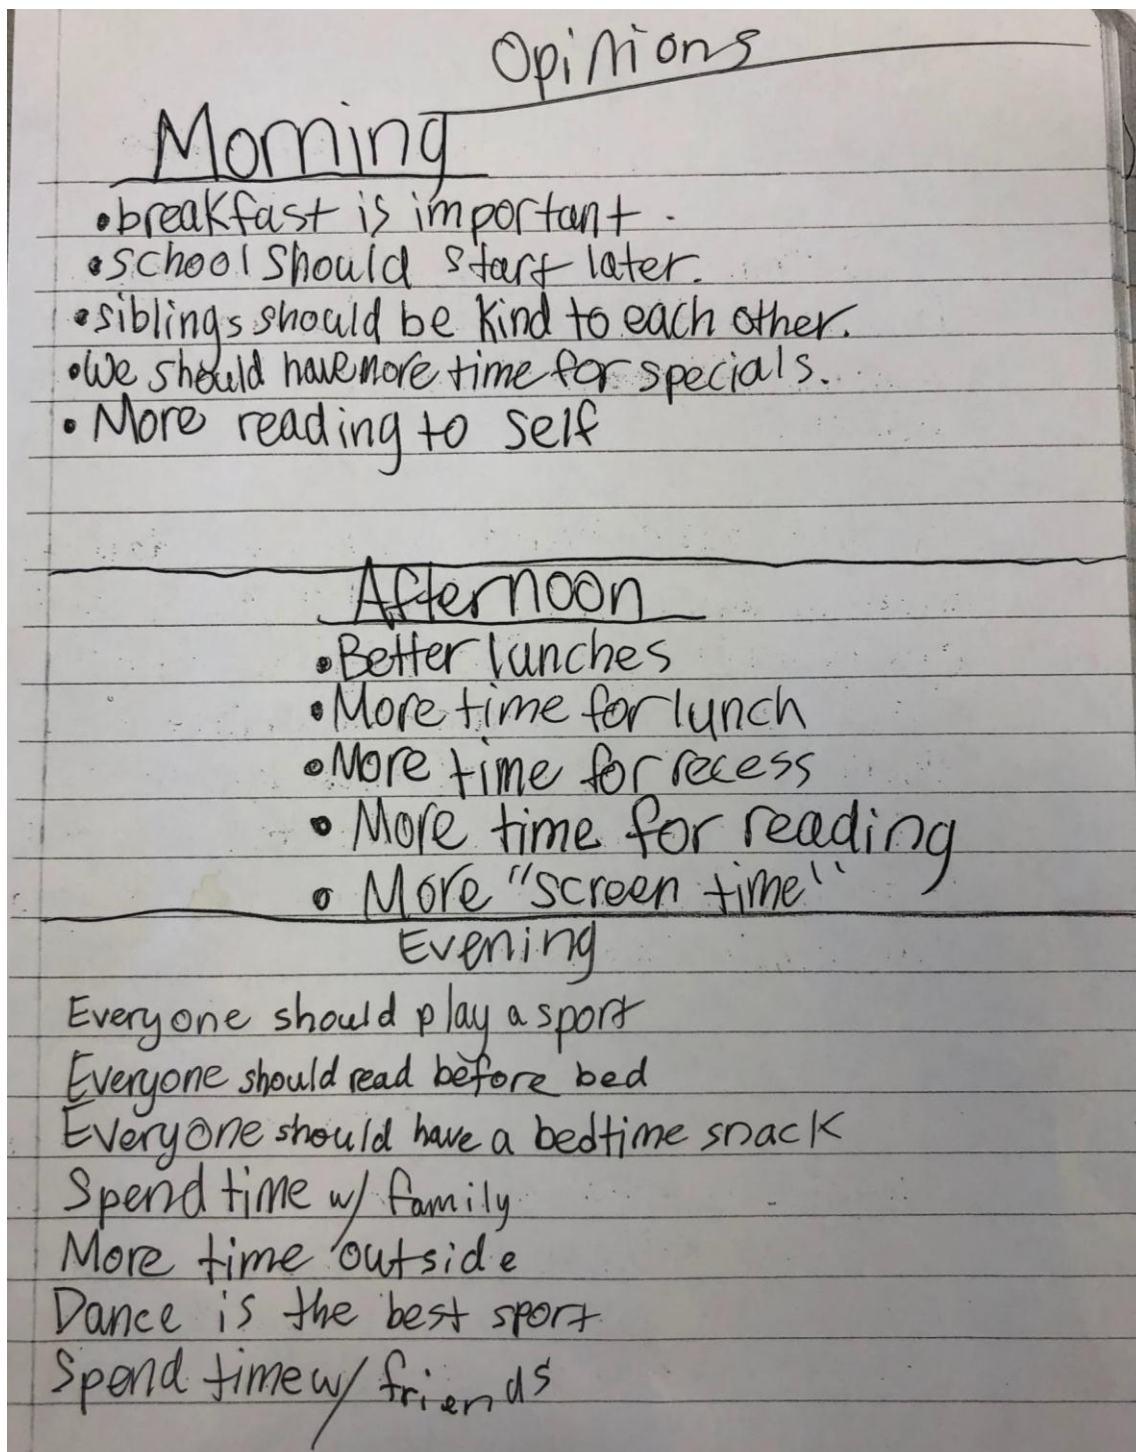 Opinions
Morning
• breakfast is important.
• school should start later.
• siblings should be kind to each other.
• We should have more time for specials.
• More reading to self
Afternoon
• Better lunches
• More time for lunch
• More time for recess
• More time for reading
• More "screen time"
Evening
Everyone should play a sport
Everyone should read before bed
Everyone should have a bedtime snack
Spend time w/ family
More time outside
Dance is the best sport
Spend time w/ friends